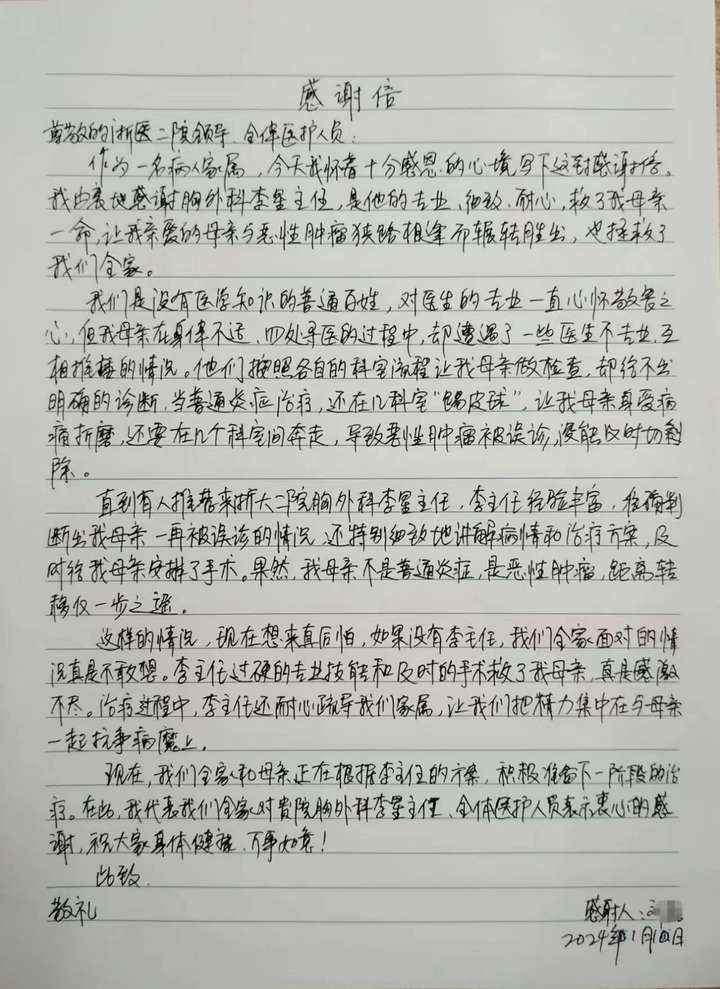 感谢信
尊敬的浙医二院领导、全体医护人员：
作为一名病人家属，今天我怀着十分感恩的心境写下这封感谢信。
我由衷地感谢胸外科李星主任，是他的专业、细致、耐心，救了我母亲
一命，让我亲爱的母亲与恶性肿瘤狭路相逢而辗转胜出，也拯救了
我们全家。
我们是没有医学知识的普通百姓，对医生的专业一直心怀敬畏之
心，但我母亲在身体不适、四处寻医的过程中，却遭遇了一些医生不专业、互
相推诿的情况。他们按照各自的科室流程让我母亲做检查，却给不出
明确的诊断，当普通炎症治疗，还在几科室“踢皮球”，让我母亲身受病
痛折磨，还要在几个科室间奔走，导致恶性肿瘤被误诊，没能及时切
除。
直到有人推荐来浙大二院胸外科李星主任，李主任经验丰富，准确判
断出我母亲一再被误诊的情况，还特别细致地讲解病情和治疗方案，及
时给我母亲安排了手术。果然，我母亲不是普通炎症，是恶性肿瘤，距离转
移仅一步之遥。
这样的情况，现在想来真后怕，如果没有李主任，我们全家面对的情
况真是不敢想。李主任过硬的专业技能和及时的手术救了我母亲，真是感激
不尽。治疗过程中，李主任还耐心疏导我们家属，让我们把精力集中在与母亲
一起抗争病魔上。
现在，我们全家和母亲正在根据李主任的方案，积极准备下一阶段的治
疗。在此，我代表我们全家对贵院胸外科李星主任、全体医护人员表示衷心的感
谢，祝大家身体健康、万事如意！
此致
敬礼
感谢人：
2024年1月10日